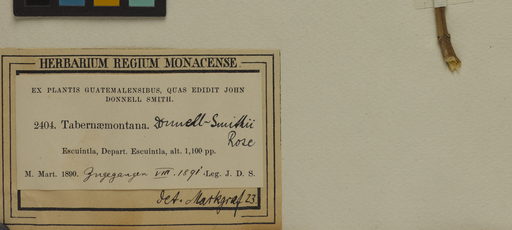 HERBARIUM REGIUM MONACENSE
EX PLANTIS GUATEMALENSIBUS, QUAS EDIDIT JOHN
DONNELL SMITH.
2404. Tabernæmontana. Donnell-Smithii
Rose
Escuintla, Depart. Escuintla, alt. 1,100 pp.
M. Mart. 1890. Zugegangen VIII. 1891 Leg. J. D. S.
det. Markgraf 23